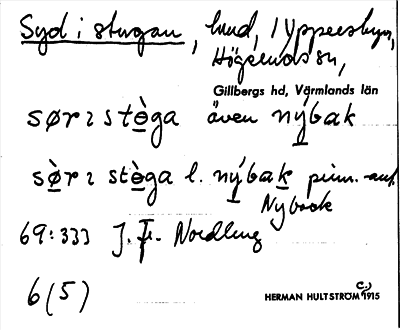 Syd i stugan, lund, i Yppersbyn,
Högerud sn,
Gillbergs hd, Värmlands län
sør ɩ stèga även nýbak
sø̀r ɩ stèga l. nýbak pinn.-ant.
Nyback
69:333 J. Fr. Nordling
6(5)
HERMAN HULTSTRÖM C:a 1915